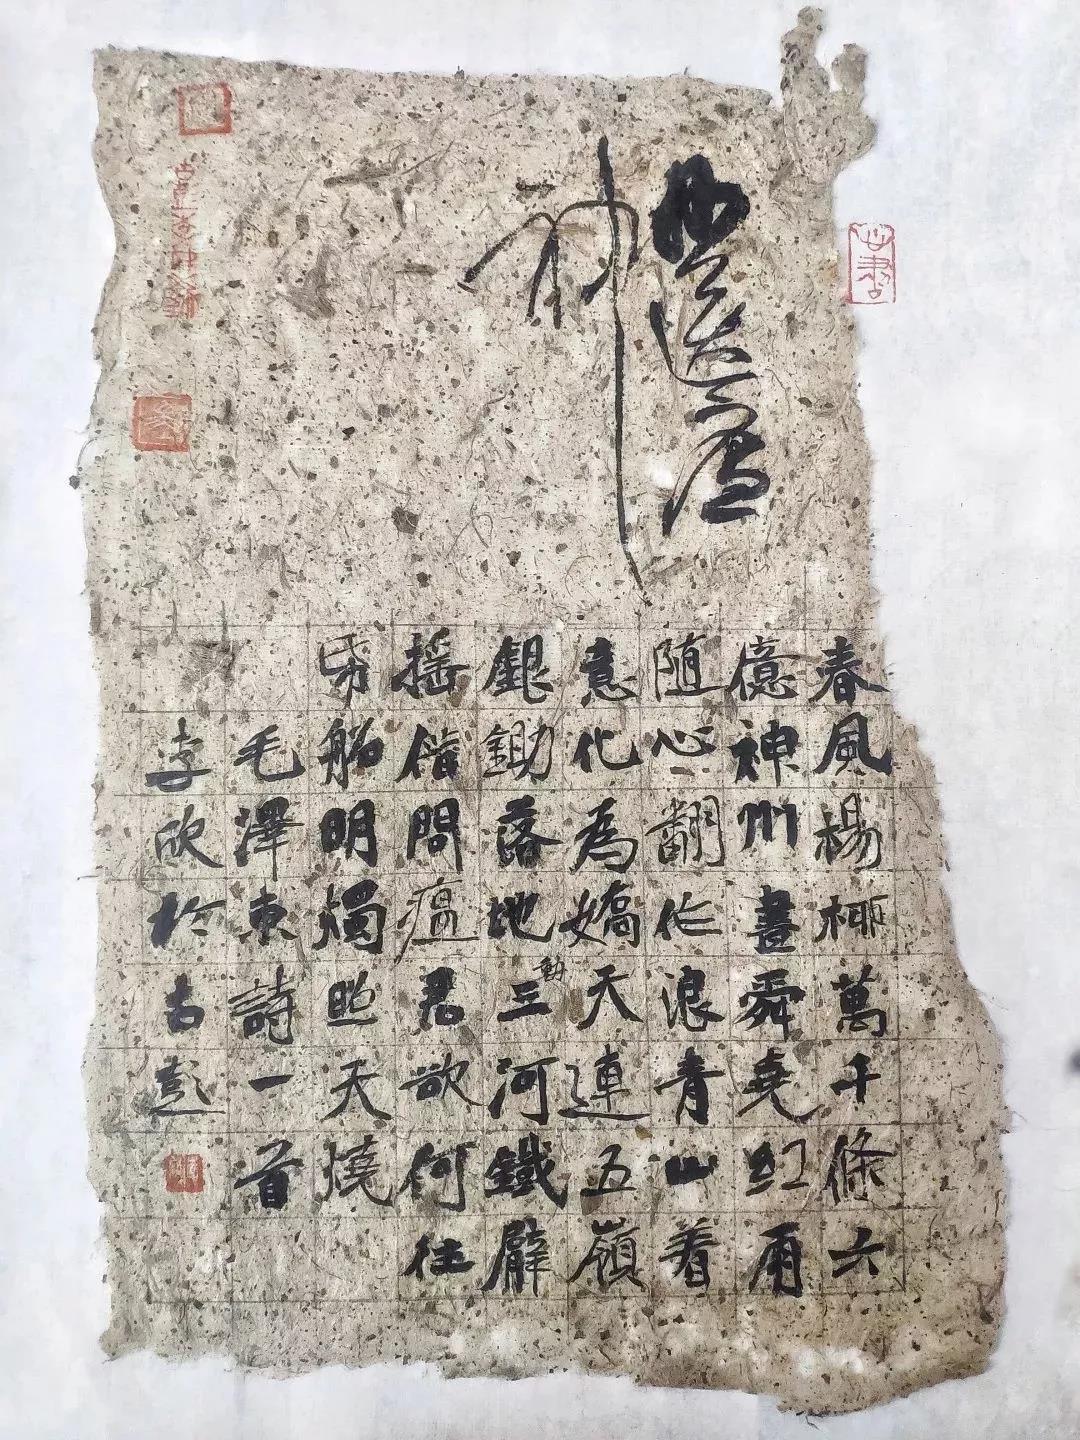 送瘟
神
春風楊柳萬千條六
億神州盡舜堯紅雨
随心翻作浪青山着
意化為嬌天連五嶺
銀鋤落地三河動鐵臂
摇借問瘟君欲何往
帋船明燭照天燒
毛澤東詩一首
李欣於古彭